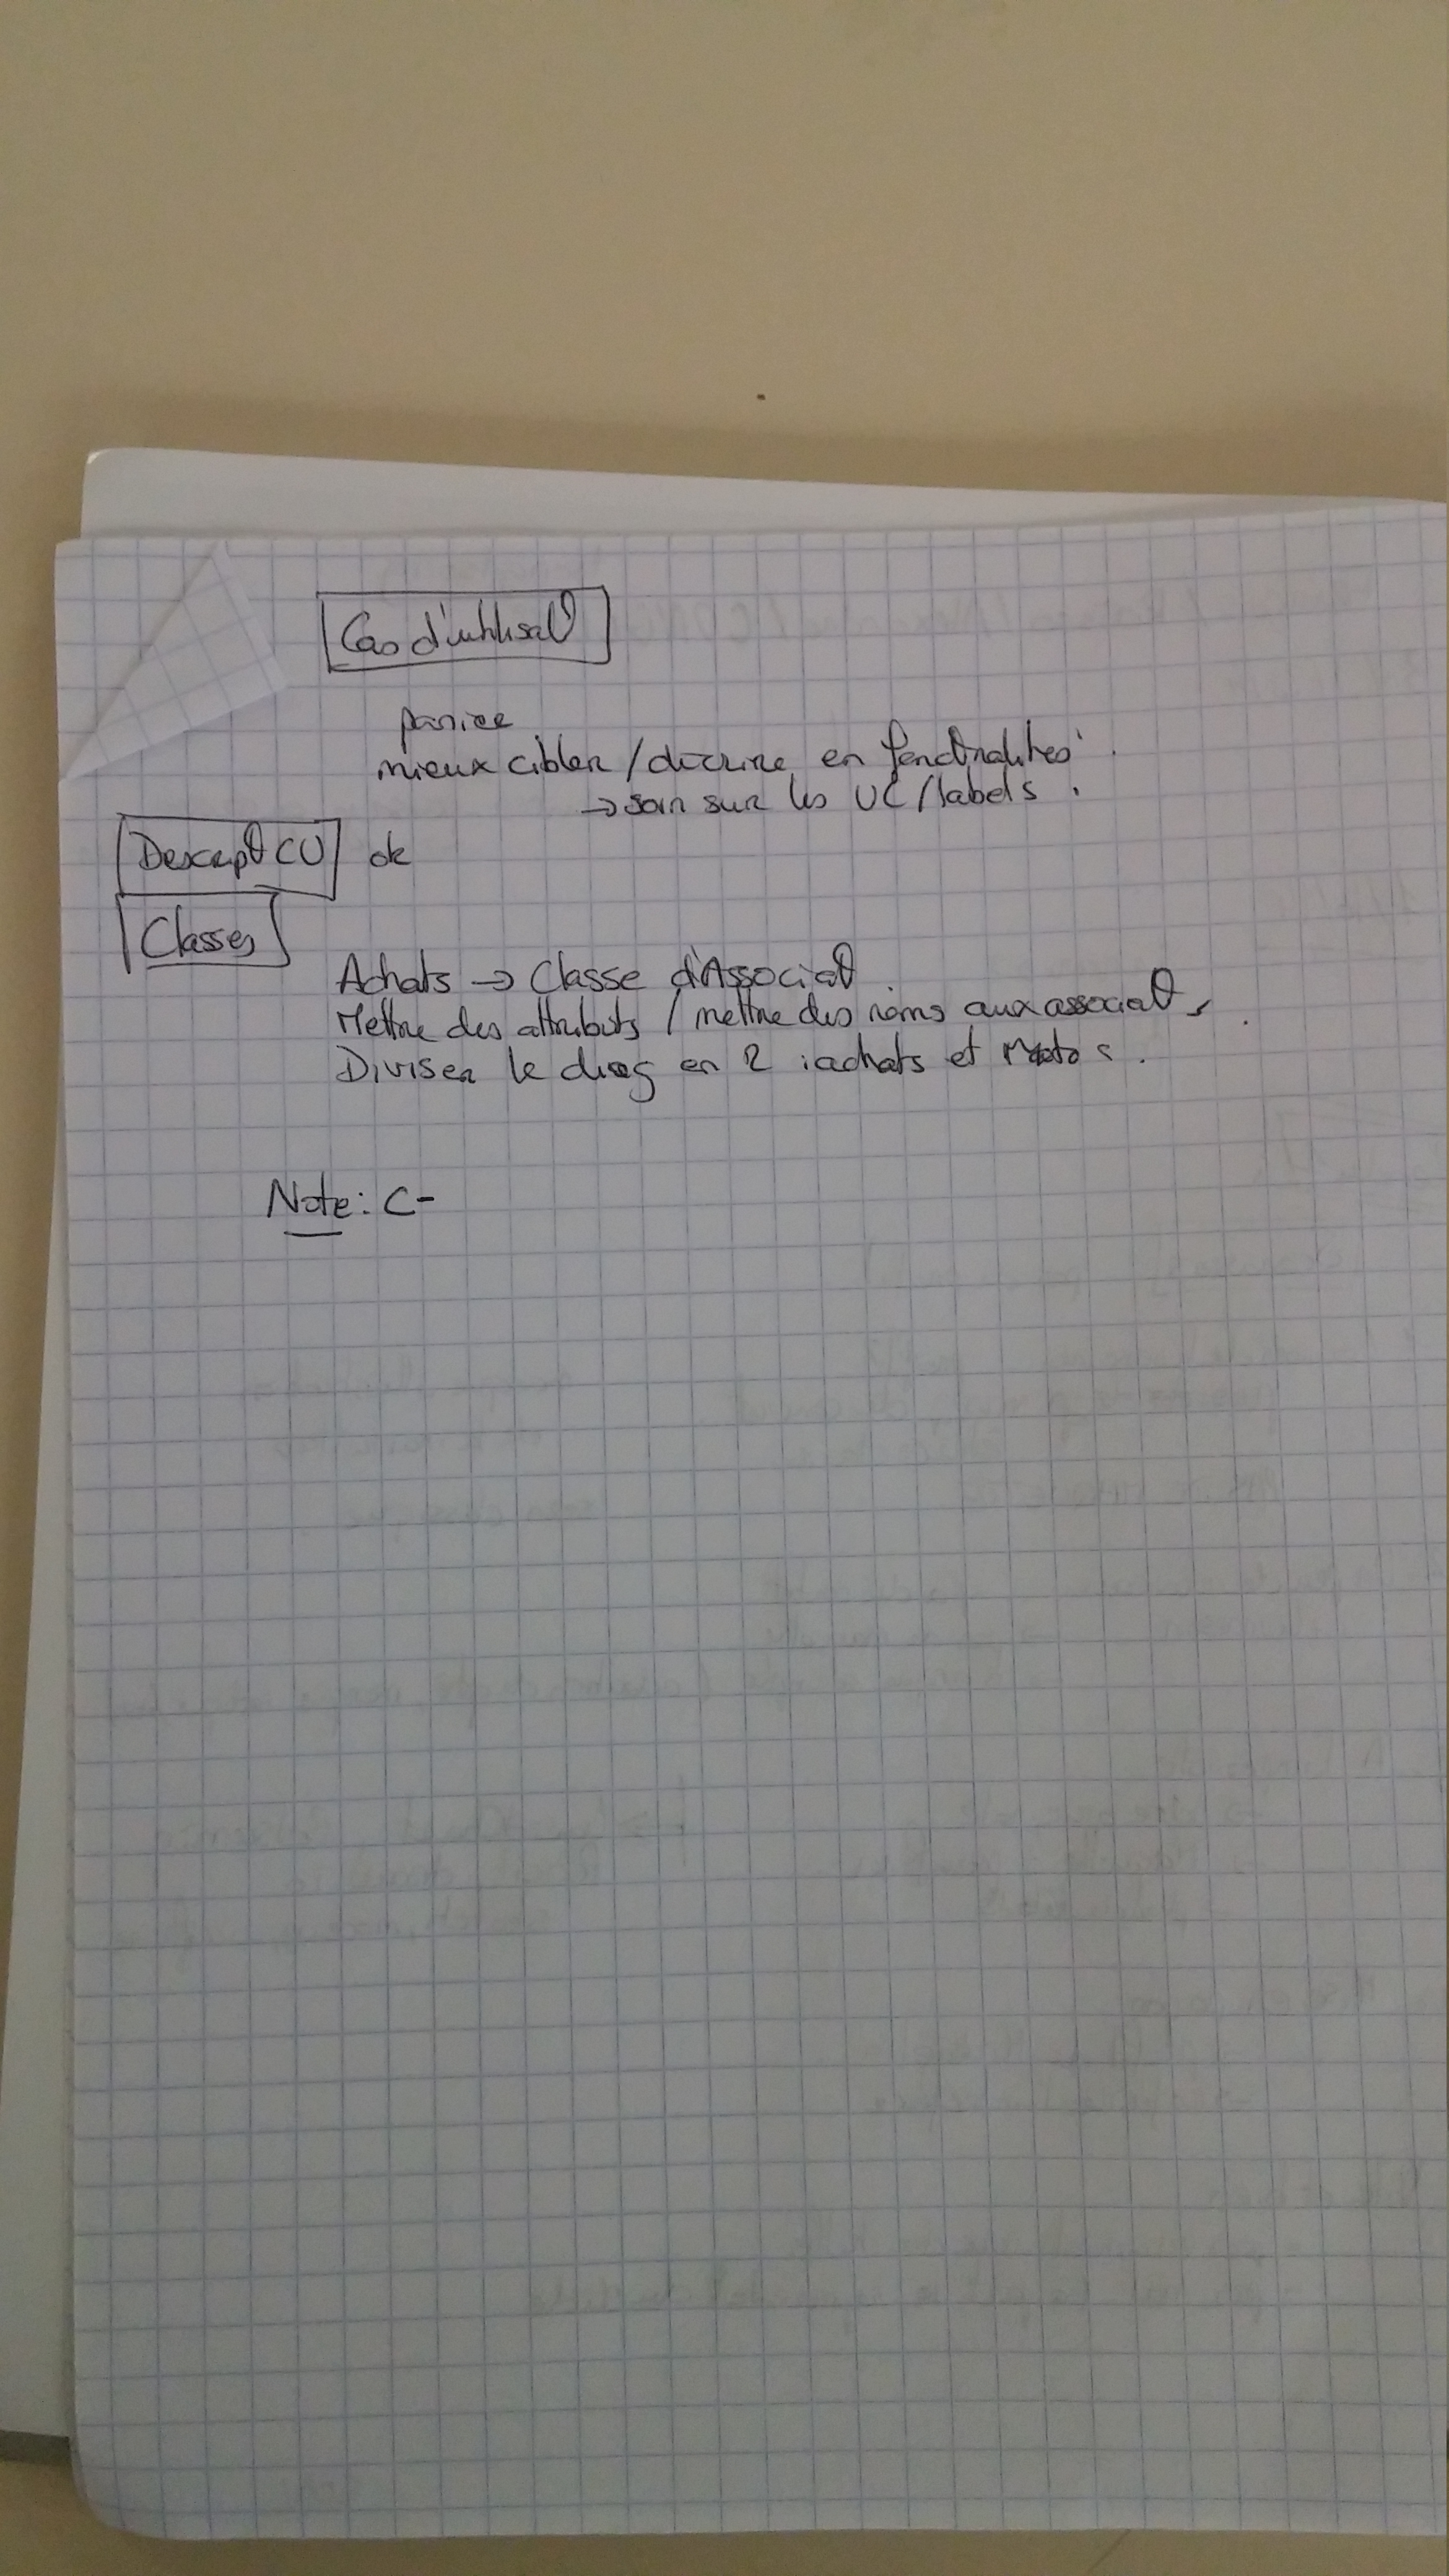 Cas d'utilisat°
panier
mieux cibler / décrire en fonct°nalités.
→ soin sur les UC/labels.
Descript° CU ok
Classes
Achats → Classe d'Associat°.
Mettre des attributs / mettre des noms aux associat°s.
Diviser le diag en 2 : achats et Motos.
Note : C-